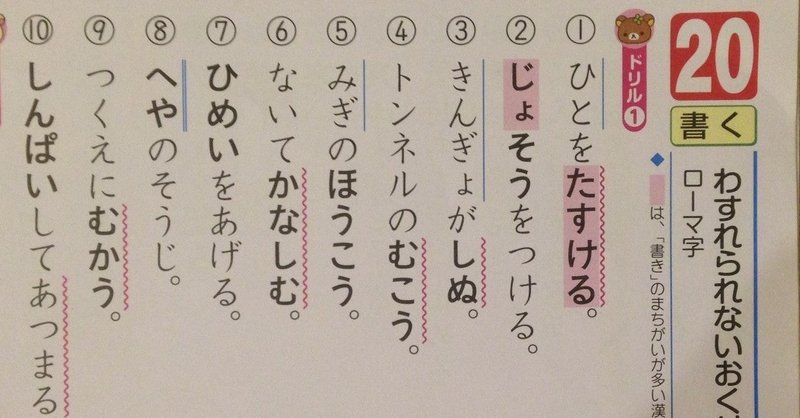 20
書く
わすれられないおく
ローマ字
は、「書き」のまちがいが多い漢
ドリル①
① ひとをたすける。
② じょそうをつける。
③ きんぎょがしぬ。
④ トンネルのむこう。
⑤ みぎのほうこう。
⑥ ないてかなしむ。
⑦ ひめいをあげる。
⑧ へやのそうじ。
⑨ つくえにむかう。
⑩ しんぱいしてあつまる